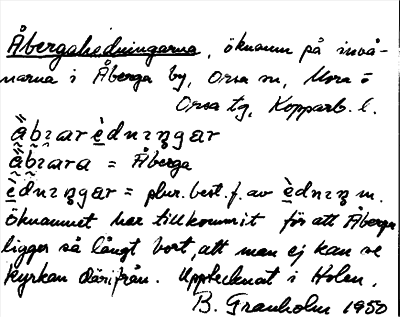 Åbergahedningarna, öknamn på invå-
narna i Åberga by, Orsa sn, Mora o
Orsa tg, Kopparb. l.
å̀bɪgarèdnɪŋgar
å̀bɪrara = Åberga
èdnɪŋgar = plur. best. f. av èdnɪŋ m.
Öknamnet har tillkommit för att Åberga
ligger så långt bort, att man ej kan se
kyrkan därifrån. Upptecknat i Holen,
B. Granholm 1950